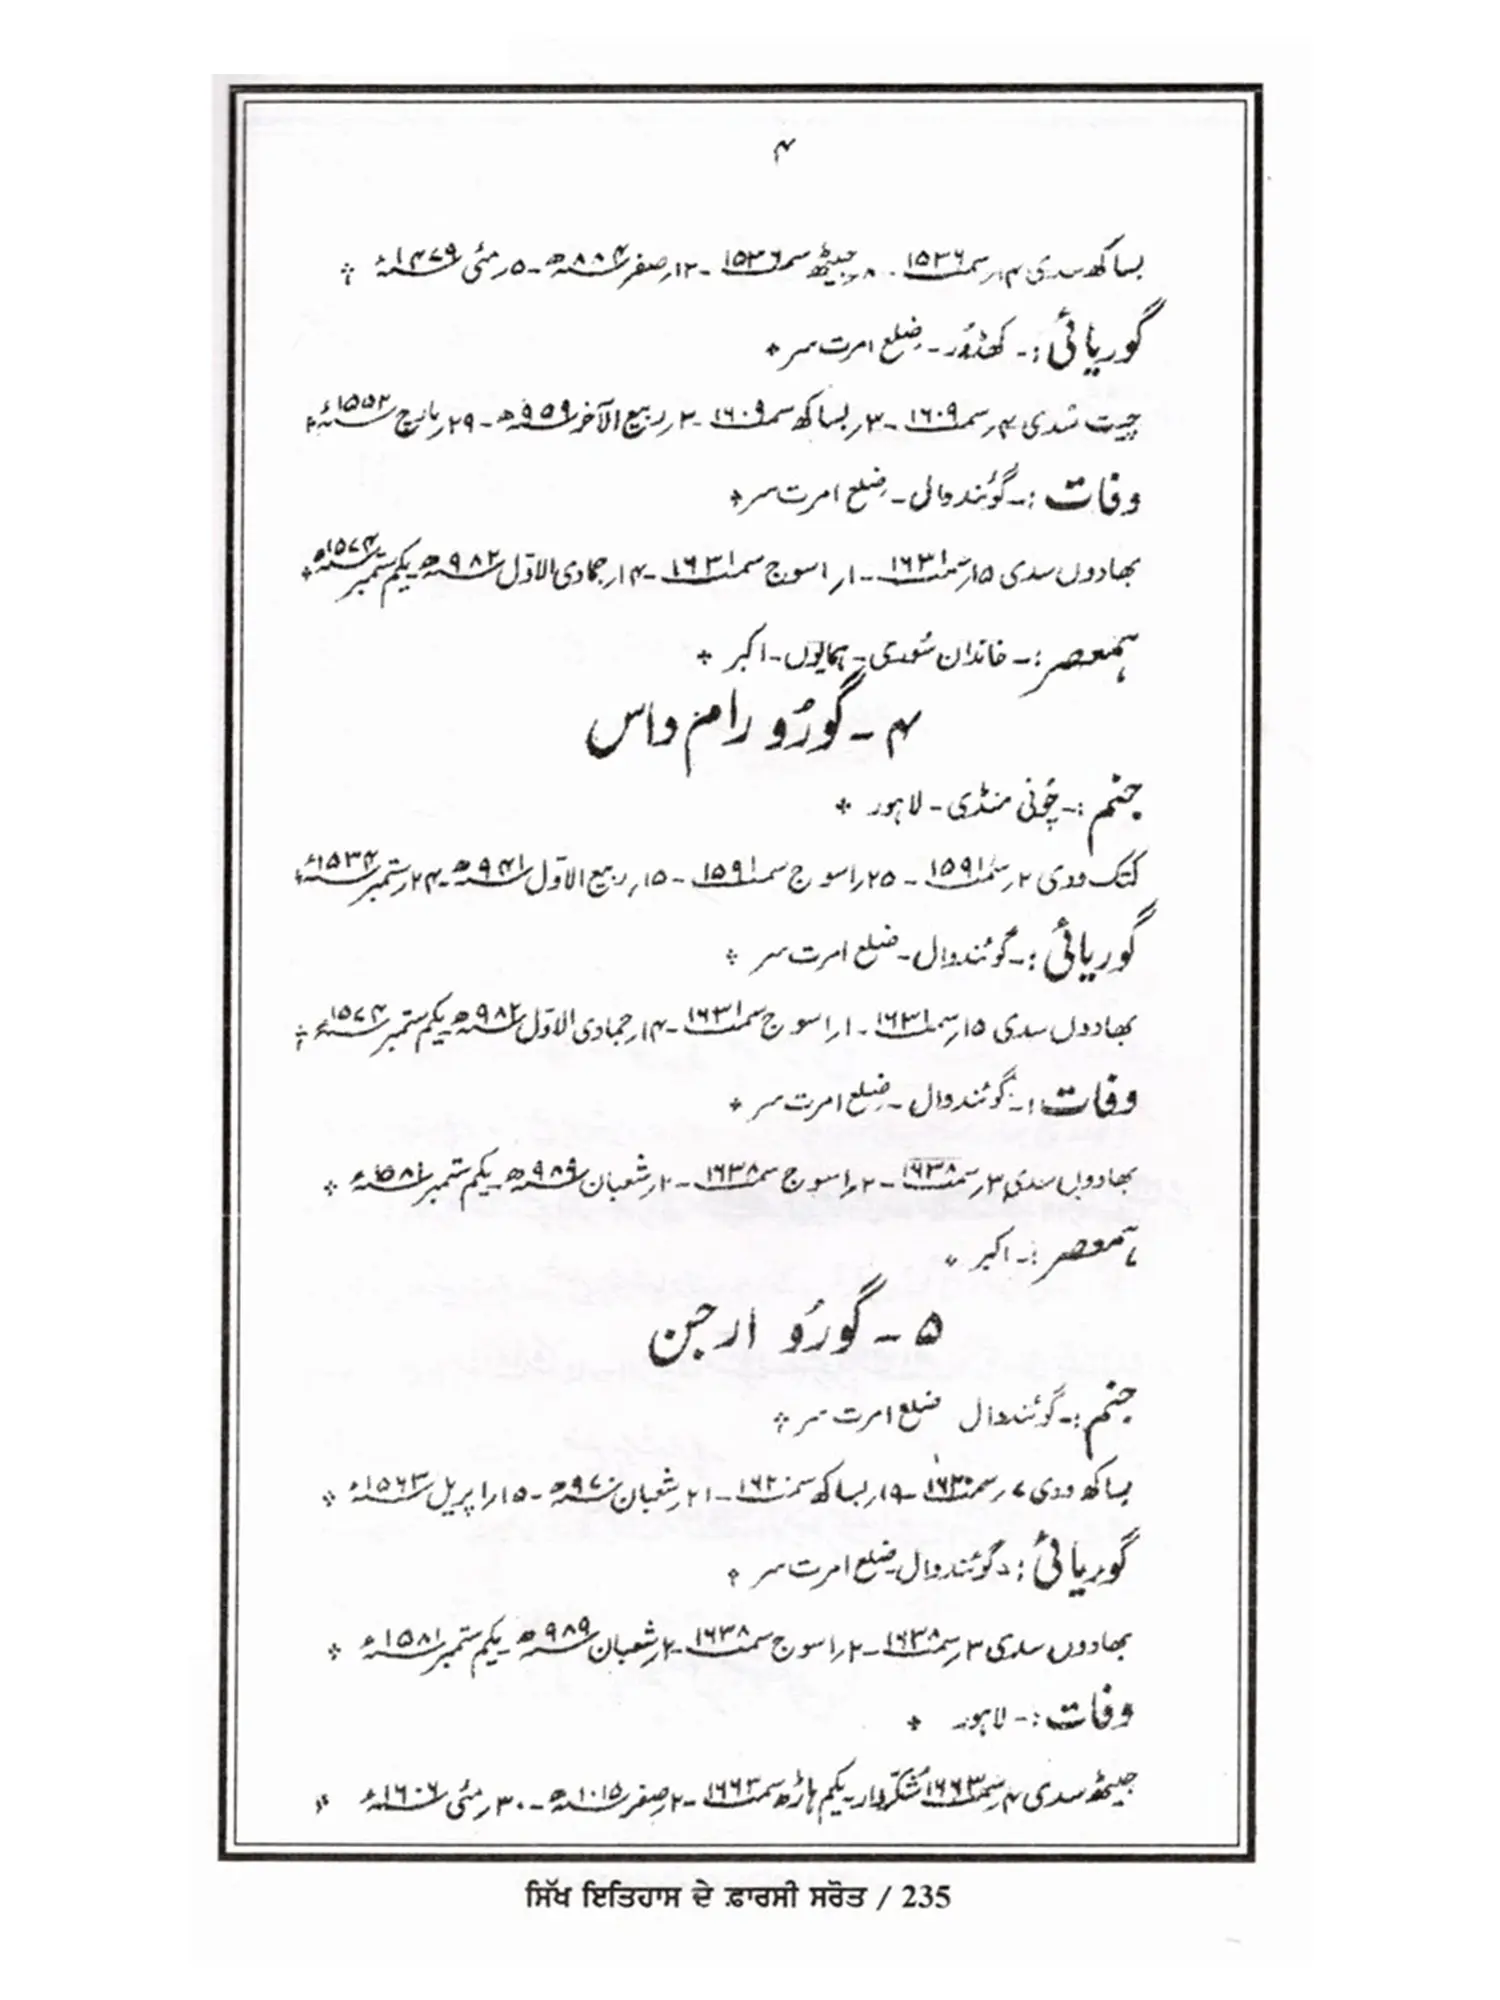 ۴
بساکھ سدی ۱۴ر سمت ۱۵۳۶ - ۸ر جیٹھ سمت ۱۵۳۶ - ۱۲ر صفر ۸۸۴ھ - ۵ر مئی ۱۴۷۹ء
گوریائی :- کھڈور - ضلع امرت سر
چیت سُدی ۴ر سمت ۱۶۰۹ - ۳ر بساکھ سمت ۱۶۰۹ - ۲ر ربیع الآخر ۹۵۹ھ - ۲۹ر مارچ ۱۵۵۲ء
وفات :- گوئندوالی - ضلع امرت سر
بھادوں سدی ۱۵ر سمت ۱۶۳۱ - ۱ر اسوج سمت ۱۶۳۱ - ۱۴ر جمادی الاوّل ۹۸۲ھ - یکم ستمبر ۱۵۷۴ء
ہمعصر :- خاندان سُوری - ہمایوں - اکبر
۴ - گورُو رام داس
جنم :- چُونی منڈی - لاہور
کتک ودی ۲ر سمت ۱۵۹۱ - ۲۵ر اسوج سمت ۱۵۹۱ - ۱۵ر ربیع الاوّل ۹۴۱ھ - ۲۴ر ستمبر ۱۵۳۴ء
گوریائی :- گوئندوال - ضلع امرت سر
بھادوں سدی ۱۵ر سمت ۱۶۳۱ - ۱ر اسوج سمت ۱۶۳۱ - ۱۴ر جمادی الاوّل ۹۸۲ھ - یکم ستمبر ۱۵۷۴ء
وفات :- گوئندوال - ضلع امرت سر
بھادوں سدی ۳ر سمت ۱۶۳۸ - ۲ر اسوج سمت ۱۶۳۸ - ۲ر شعبان ۹۸۹ھ - یکم ستمبر ۱۵۸۱ء
ہمعصر :- اکبر
۵ - گورُو ارجن
جنم :- گوئندوال ضلع امرت سر
بساکھ ودی ۷ر سمت ۱۶۲۰ - ۱۹ر بساکھ سمت ۱۶۲۰ - ۲۱ر شعبان ۹۷۰ھ - ۱۵ر اپریل ۱۵۶۳ء
گوریائی :- گوئندوال ضلع امرت سر
بھادوں سدی ۳ر سمت ۱۶۳۸ - ۲ر اسوج سمت ۱۶۳۸ - ۲ر شعبان ۹۸۹ھ - یکم ستمبر ۱۵۸۱ء
وفات :- لاہور
جیٹھ سدی ۴ر سمت ۱۶۶۳ شکروار - یکم ہاڑھ سمت ۱۶۶۳ - ۲ر صفر ۱۰۱۵ھ - ۳۰ر مئی ۱۶۰۶ء
ਸਿੱਖ ਇਤਿਹਾਸ ਦੇ ਫ਼ਾਰਸੀ ਸਰੋਤ / 235